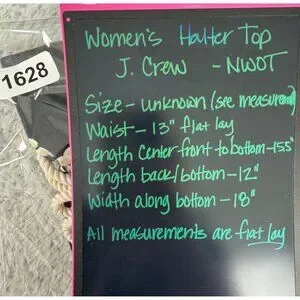 1628
Women's Halter Top
J. Crew - NWOT
Size - unknown (see measurement)
Waist - 13" flat lay
Length Center front to bottom - 15.5"
Length back/bottom - 12"
Width along bottom - 18"
All measurements are flat lay